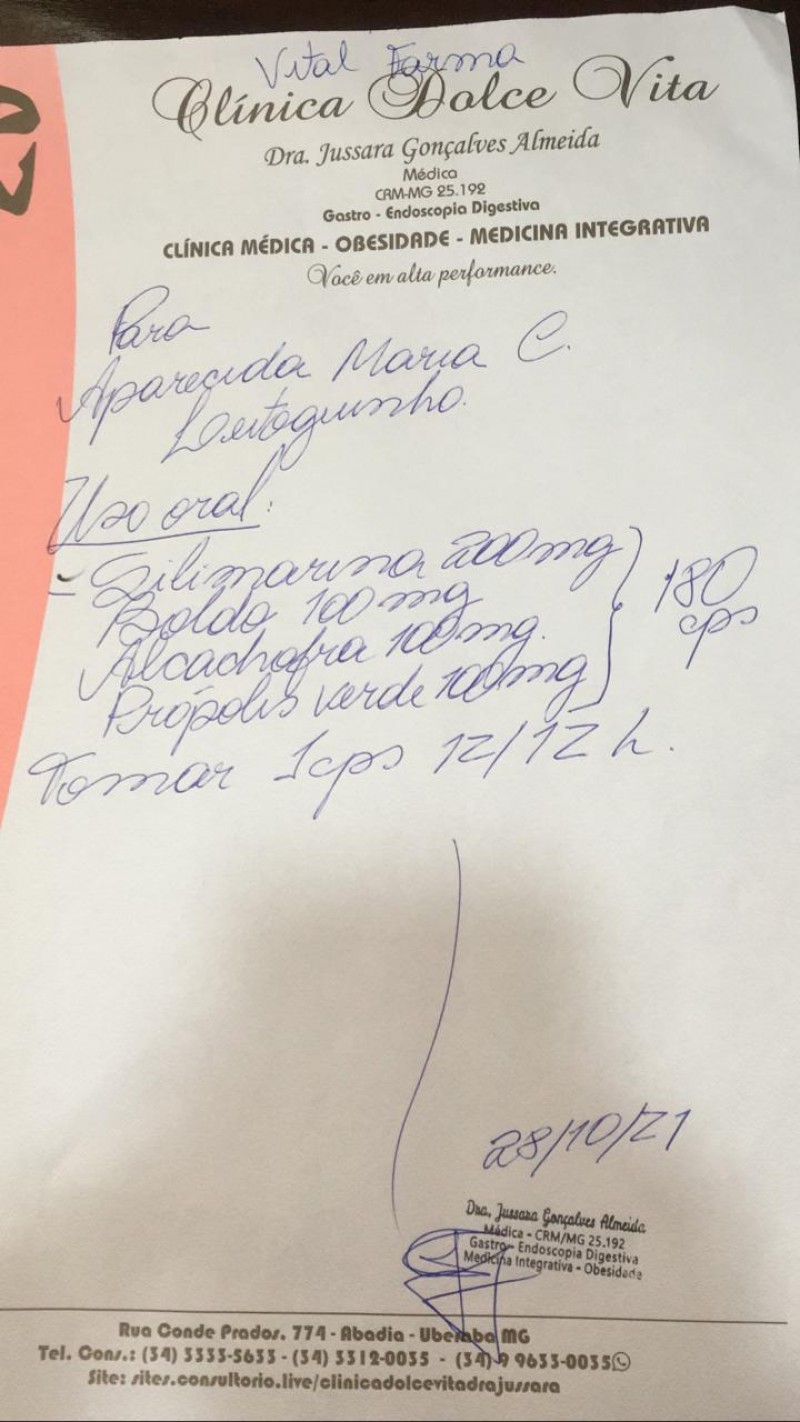 Vital Farma
Clínica Dolce Vita
Dra. Jussara Gonçalves Almeida
Médica
CRM-MG 25.192
Gastro - Endoscopia Digestiva
CLÍNICA MÉDICA - OBESIDADE - MEDICINA INTEGRATIVA
Você em alta performance.
Para
Aparecida Maria C.
Uso oral:
- Silimarina 200mg
Boldo 100mg
Alcachofra 100mg.
Própolis verde 100mg
180
cps
Tomar 1cps 12/12 h.
28/10/21
Dra. Jussara Gonçalves Almeida
Médica - CRM/MG 25.192
Gastro - Endoscopia Digestiva
Medicina Integrativa - Obesidade
Rua Conde Prados, 774 - Abadia - Uberaba MG
Tel. Cons.: (34) 3333-5633 - (34) 3312-0035 - (34) 9 9633-0035
Site: sites.consultorio.live/clinicadolcevitadrajussara